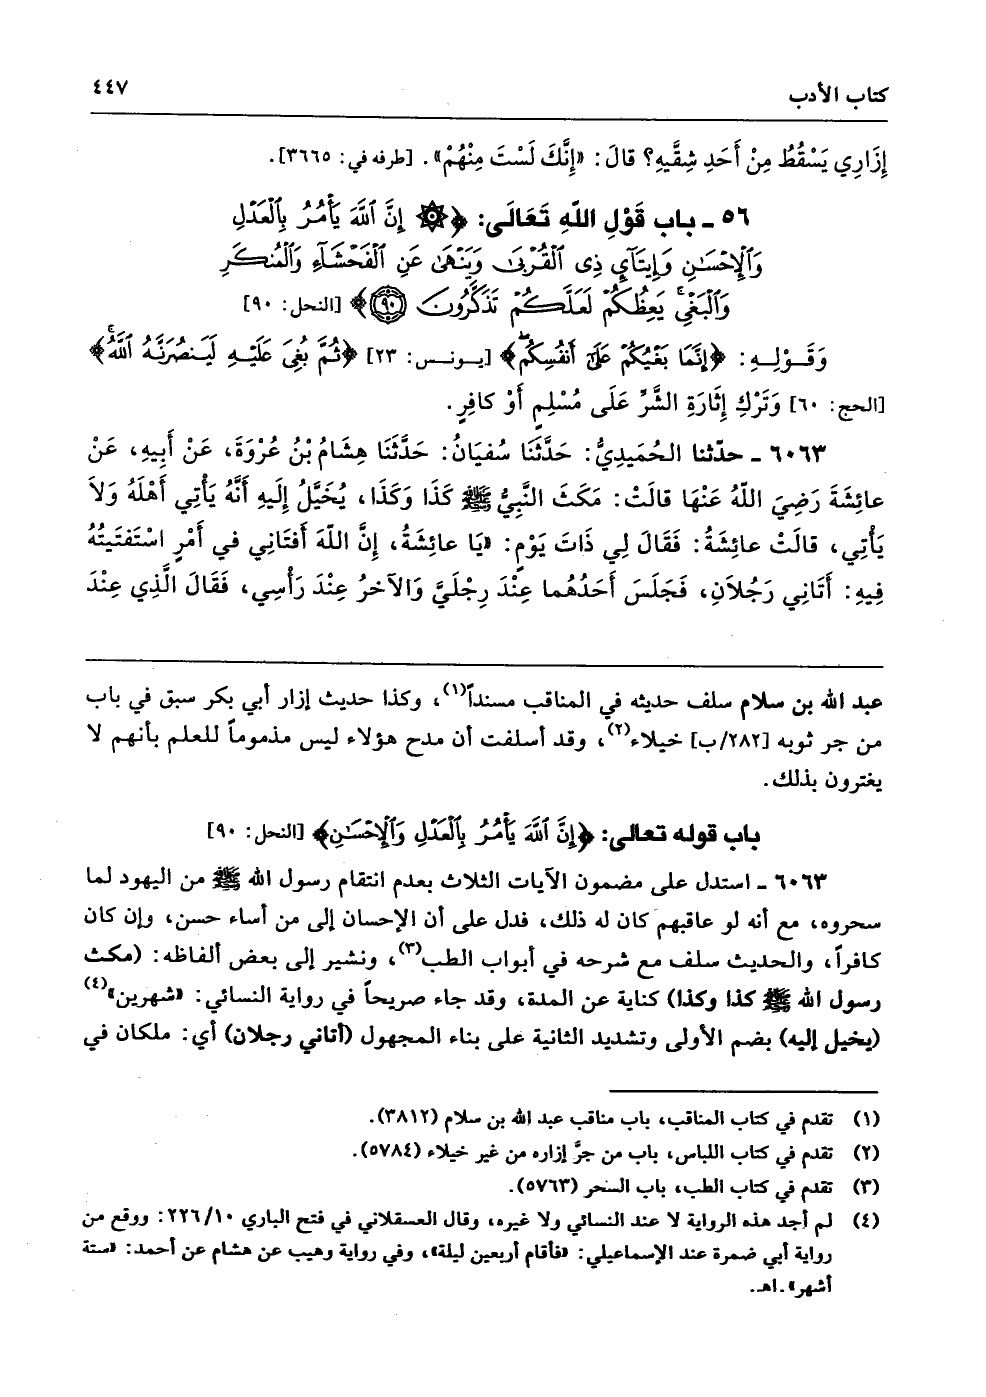 كتاب الأدب ٤٤٧
إِزَارِي يَسْقُطُ مِنْ أَحَدِ شِقَّيهِ؟ قالَ: «إِنَّكَ لَسْتَ مِنْهُمْ». [طرفه في: ٣٦٦٥].
٥٦ ـ باب قَوْلِ اللّٰهِ تَعَالَى: ﴿۞ إِنَّ ٱللَّهَ يَأْمُرُ بِٱلْعَدْلِ
وَٱلْإِحْسَٰنِ وَإِيتَآيِٕ ذِى ٱلْقُرْبَىٰ وَيَنْهَىٰ عَنِ ٱلْفَحْشَآءِ وَٱلْمُنكَرِ
وَٱلْبَغْىِۚ يَعِظُكُمْ لَعَلَّكُمْ تَذَكَّرُونَ ۝٩٠﴾ [النحل: ٩٠]
وَقَـوْلِـهِ: ﴿إِنَّمَا بَغْيُكُمْ عَلَىٰٓ أَنفُسِكُمۖ﴾ [يـونـس: ٢٣] ﴿ثُمَّ بُغِىَ عَلَيْـهِ لَيَـنصُرَنَّـهُ ٱللَّهُۚ﴾
[الحج: ٦٠] وَتَرْكِ إِثَارَةِ الشَّرِّ عَلَى مُسْلِمٍ أَوْ كافِرٍ.
٦٠٦٣ ـ حدّثنا الحُمَيدِيُّ: حَدَّثَنَا سُفيَانُ: حَدَّثَنَا هِشَامُ بْنُ عُرْوَةَ، عَنْ أَبِيهِ، عَنْ
عائِشَةَ رَضِيَ اللّٰهُ عَنْهَا قالَتْ: مَكَثَ النَّبِيُّ ﷺ كَذَا وَكَذَا، يُخَيَّلُ إِلَيهِ أَنَّهُ يَأْتِي أَهْلَهُ وَلاَ
يَأْتِي، قالَتْ عائِشَةُ: فَقَالَ لِي ذَاتَ يَوْمٍ: «يَا عائِشَةُ، إِنَّ اللّٰهَ أَفتَانِي في أَمْرٍ اسْتَفتَيتُهُ
فِيهِ: أَتَانِي رَجُلاَنِ، فَجَلَسَ أَحَدُهُما عِنْدَ رِجْلَيَّ وَالآخرُ عِنْدَ رَأْسِي، فَقَالَ الَّذِي عِنْدَ
عبد الله بن سلام سلف حديثه في المناقب مسنداً(١)، وكذا حديث إزار أبي بكر سبق في باب
من جر ثوبه [٢٨٢/ب] خيلاء(٢)، وقد أسلفت أن مدح هؤلاء ليس مذموماً للعلم بأنهم لا
يغترون بذلك.
باب قوله تعالى: ﴿إِنَّ ٱللَّهَ يَأْمُرُ بِٱلْعَدْلِ وَٱلْإِحْسَٰنِ﴾ [النحل: ٩٠]
٦٠٦٣ ـ استدل على مضمون الآيات الثلاث بعدم انتقام رسول الله ﷺ من اليهود لما
سحروه، مع أنه لو عاقبهم كان له ذلك، فدل على أن الإحسان إلى من أساء حسن، وإن كان
كافراً، والحديث سلف مع شرحه في أبواب الطب(٣)، ونشير إلى بعض ألفاظه: (مكث
رسول الله ﷺ كذا وكذا) كناية عن المدة، وقد جاء صريحاً في رواية النسائي: «شهرين»(٤)
(يخيل إليه) بضم الأولى وتشديد الثانية على بناء المجهول (أتاني رجلان) أي: ملكان في
(١) تقدم في كتاب المناقب، باب مناقب عبد الله بن سلام (٣٨١٢).
(٢) تقدم في كتاب اللباس، باب من جرَّ إزاره من غير خيلاء (٥٧٨٤).
(٣) تقدم في كتاب الطب، باب السحر (٥٧٦٣).
(٤) لم أجد هذه الرواية لا عند النسائي ولا غيره، وقال العسقلاني في فتح الباري ٢٢٦/١٠: ووقع من
رواية أبي ضمرة عند الإسماعيلي: «فأقام أربعين ليلة»، وفي رواية وهيب عن هشام عن أحمد: «ستة
أشهر».اهـ.